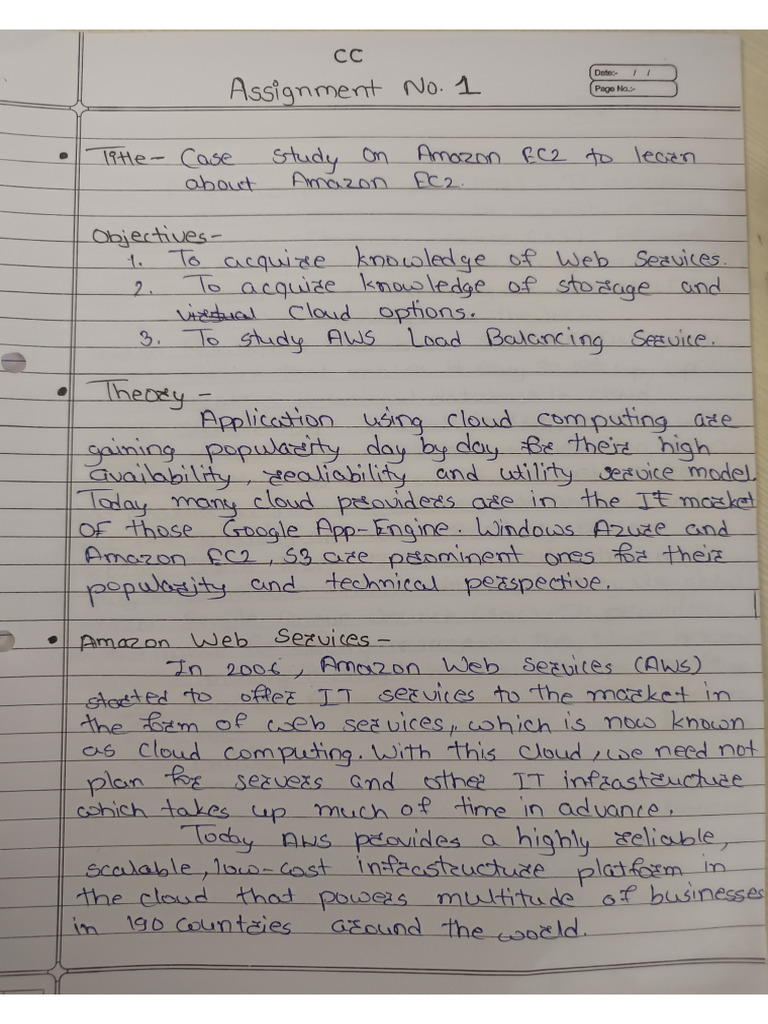 CC
Assignment No. 1
Date:- / /
Page No.:-
• Title - Case study on Amazon EC2 to learn
about Amazon EC2.
Objectives -
1. To acquire knowledge of Web Services.
2. To acquire knowledge of storage and
virtual Cloud options.
3. To study AWS Load Balancing Service.
• Theory -
Application using cloud computing are
gaining popularity day by day for their high
availability, realiability and utility service model.
Today many cloud providers are in the IT market
of those Google App-Engine. Windows Azure and
Amazon EC2, S3 are prominent ones for their
popularity and technical perspective.
• Amazon Web Services -
In 2006, Amazon Web Services (AWS)
started to offer IT services to the market in
the form of web services, which is now known
as Cloud computing. With this cloud, we need not
plan for servers and other IT infrastructure
which takes up much of time in advance.
Today AWS provides a highly reliable,
scalable, low-cost infrastructure platform in
the cloud that powers multitude of businesses
in 190 countries around the world.